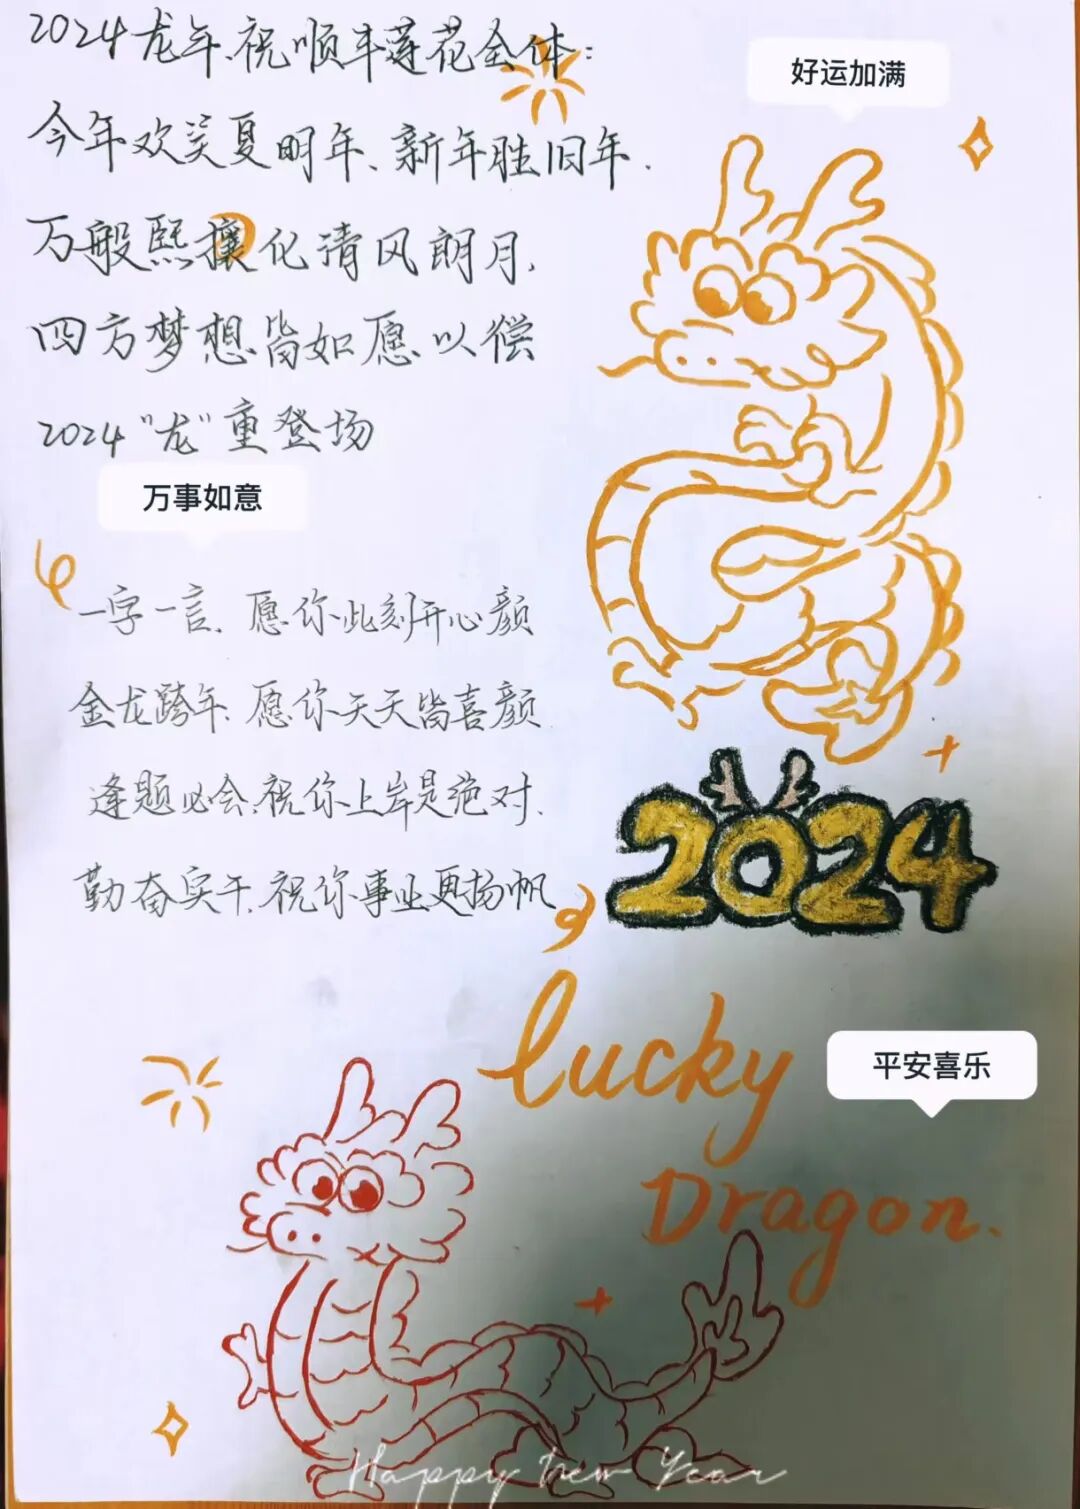 2024龙年、祝顺丰莲花全体：
好运加满
今年欢笑夏明年、新年胜旧年.
万般熙攘化清风朗月,
四方梦想皆如愿以偿
2024“龙”重登场
万事如意
一字一言、愿你此刻开心颜
金龙跨年、愿你天天皆喜颜
逢题必会、祝你上岸是绝对、
勤奋实干、祝你事业更扬帆
2024
lucky
平安喜乐
Dragon.
Happy New Year